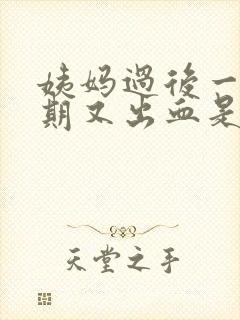 姨妈過後一
期又出血是
天堂之手